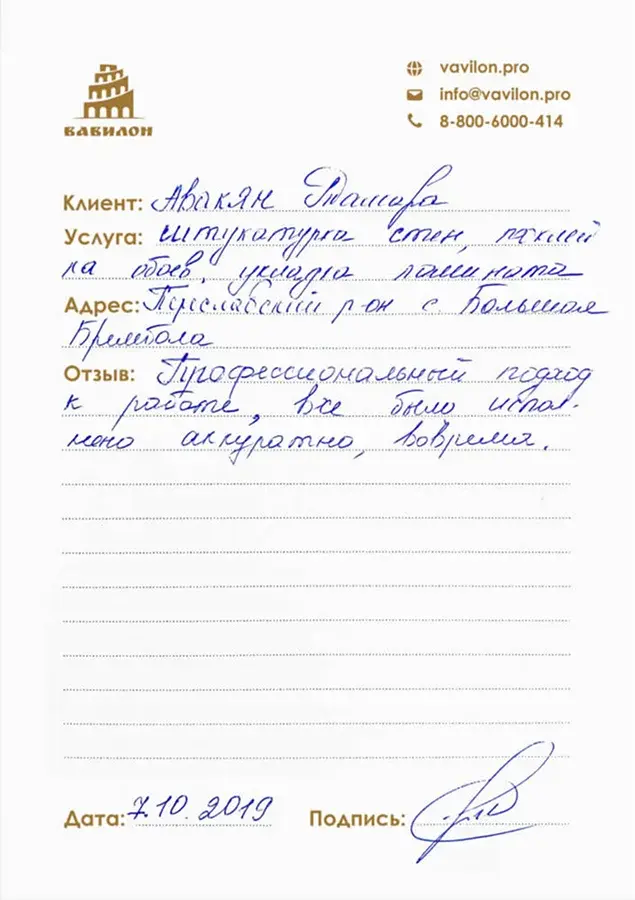 ВАВИЛОН
vavilon.pro
info@vavilon.pro
8-800-6000-414
Клиент: Авакян Тамара
Услуга: штукатурка стен, поклей
ка обоев, укладка ламината
Адрес: Переславский р-он с. Большая
Брембола
Отзыв: Профессиональный подход
к работе, все было испол-
нено аккуратно, вовремя.
Дата: 7.10.2019 Подпись: